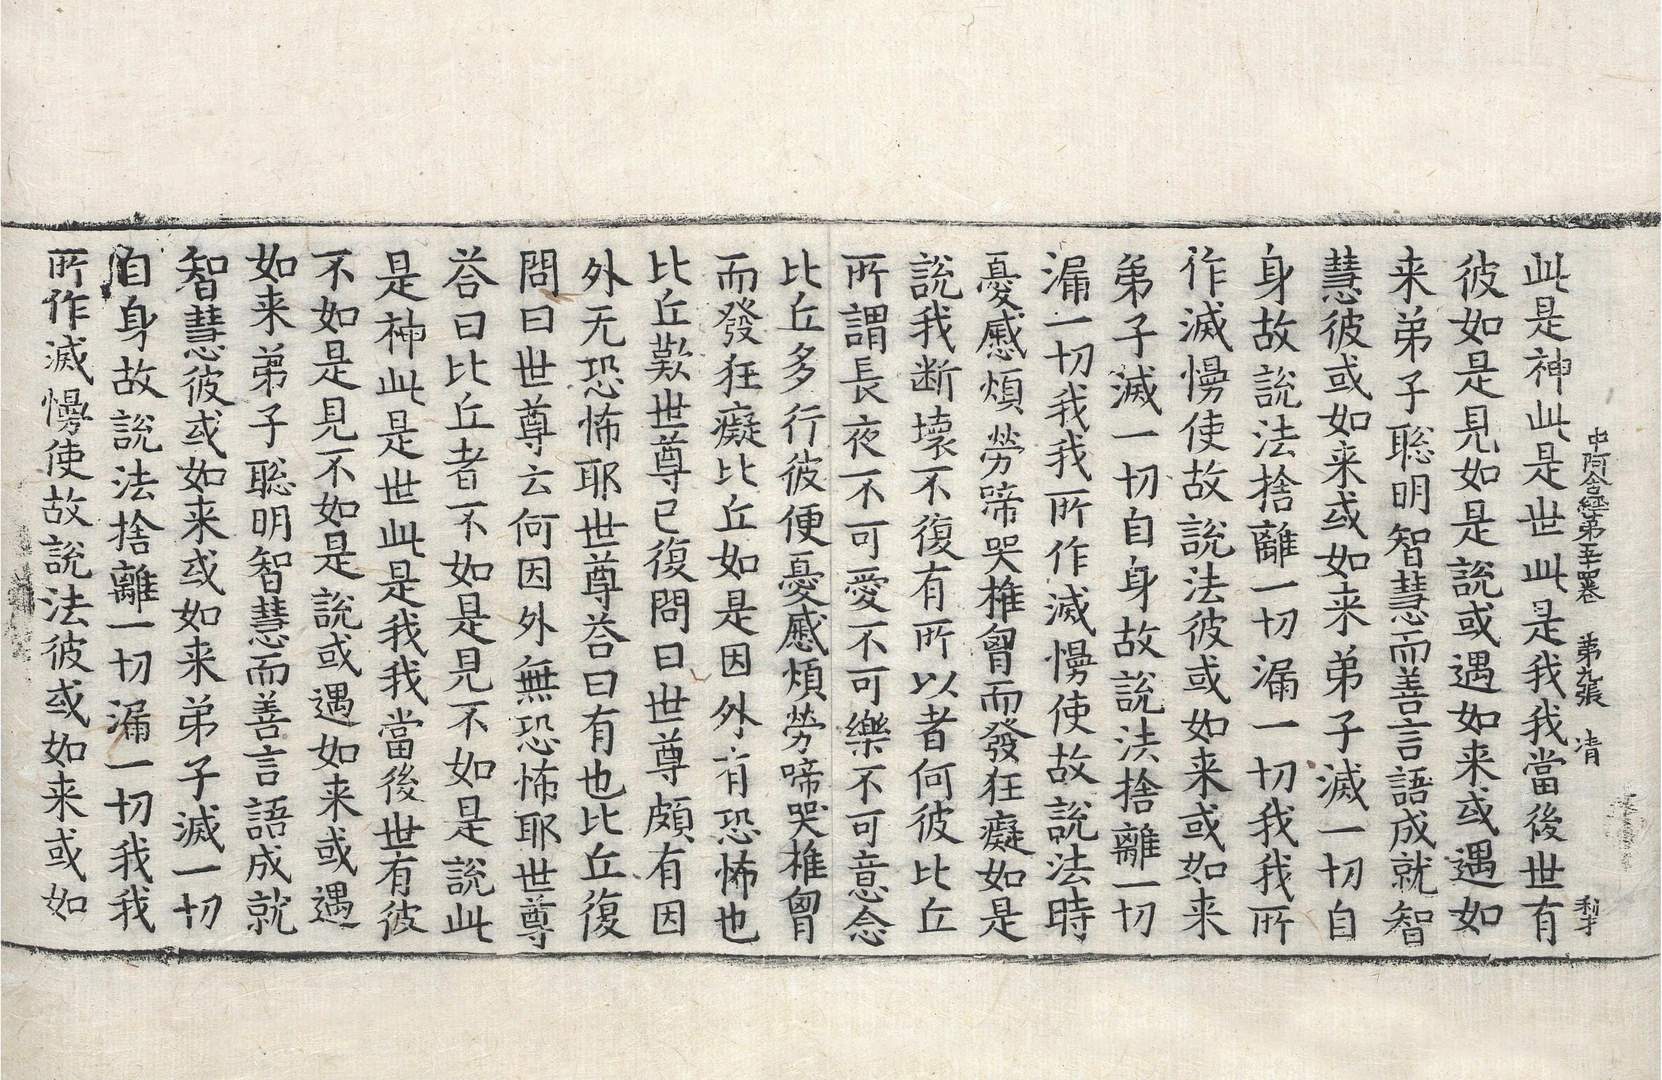 中阿含經第五十四卷　第九張　清　　　刹
此是神此是世此是我我當後世有
彼如是見如是說或遇如来或遇如
来弟子聦明智慧而善言語成就智
慧彼或如来或如来弟子滅一切自
身故說法捨離一切漏一切我我所
作滅慢使故說法彼或如来或如来
弟子滅一切自身故說法捨離一切
漏一切我我所作滅慢使故說法時
憂慼煩勞啼哭椎胷而發狂癡如是
說我断壞不復有所以者何彼比丘
所謂長夜不可愛不可樂不可意念
比丘多行彼便憂慼煩勞啼哭椎胷
而發狂癡比丘如是因外有恐怖也
比丘歎世尊已復問曰世尊頗有因
外无恐怖耶世尊荅曰有也比丘復
問曰世尊云何因外無恐怖耶世尊
荅曰比丘者不如是見不如是說此
是神此是世此是我我當後世有彼
不如是見不如是說或遇如来或遇
如来弟子聦明智慧而善言語成就
智慧彼或如来或如来弟子滅一切
自身故說法捨離一切漏一切我我
所作滅慢使故說法彼或如来或如